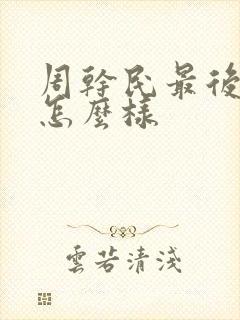 周幹民最後
怎麼樣
雲若清淺